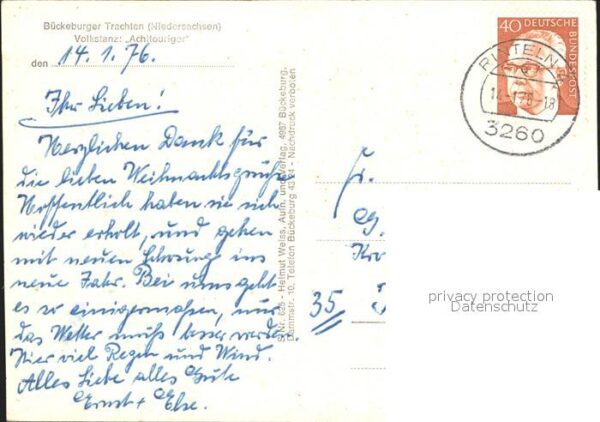 Bückeburger Trachten (Niedersachsen)
Volkstanz: „Achttouriger"
den 14.1.76.
Ihr Lieben!
Herzlichen Dank für
die lieben Weihnachtsgrüße
Hoffentlich haben sie sich
wieder erholt, und gehen
mit neuen Schwung ins
neue Jahr. Bei uns geht
es so einigermaßen, nur
das Wetter muß besser werden
Hier viel Regen und Wind.
Alles Liebe alles Gute
Ernst + Else.
Helmut Weiss, Aufn. und Verlag, 4967 Bückeburg,
Dammstr. 10, Telefon Bückeburg 4324 - Nachdruck verboten
40 DEUTSCHE
BUNDESPOST
RINTELN
14.-1.76-18
3260
Fr.
35
privacy protection
Datenschutz